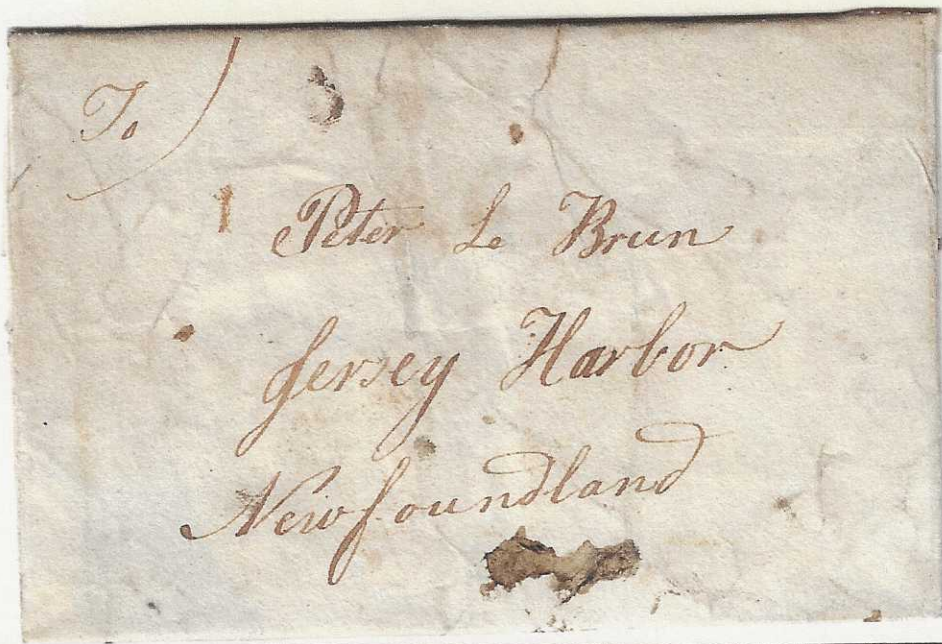 To
Peter Le Brun
Jersey Harbor
Newfoundland